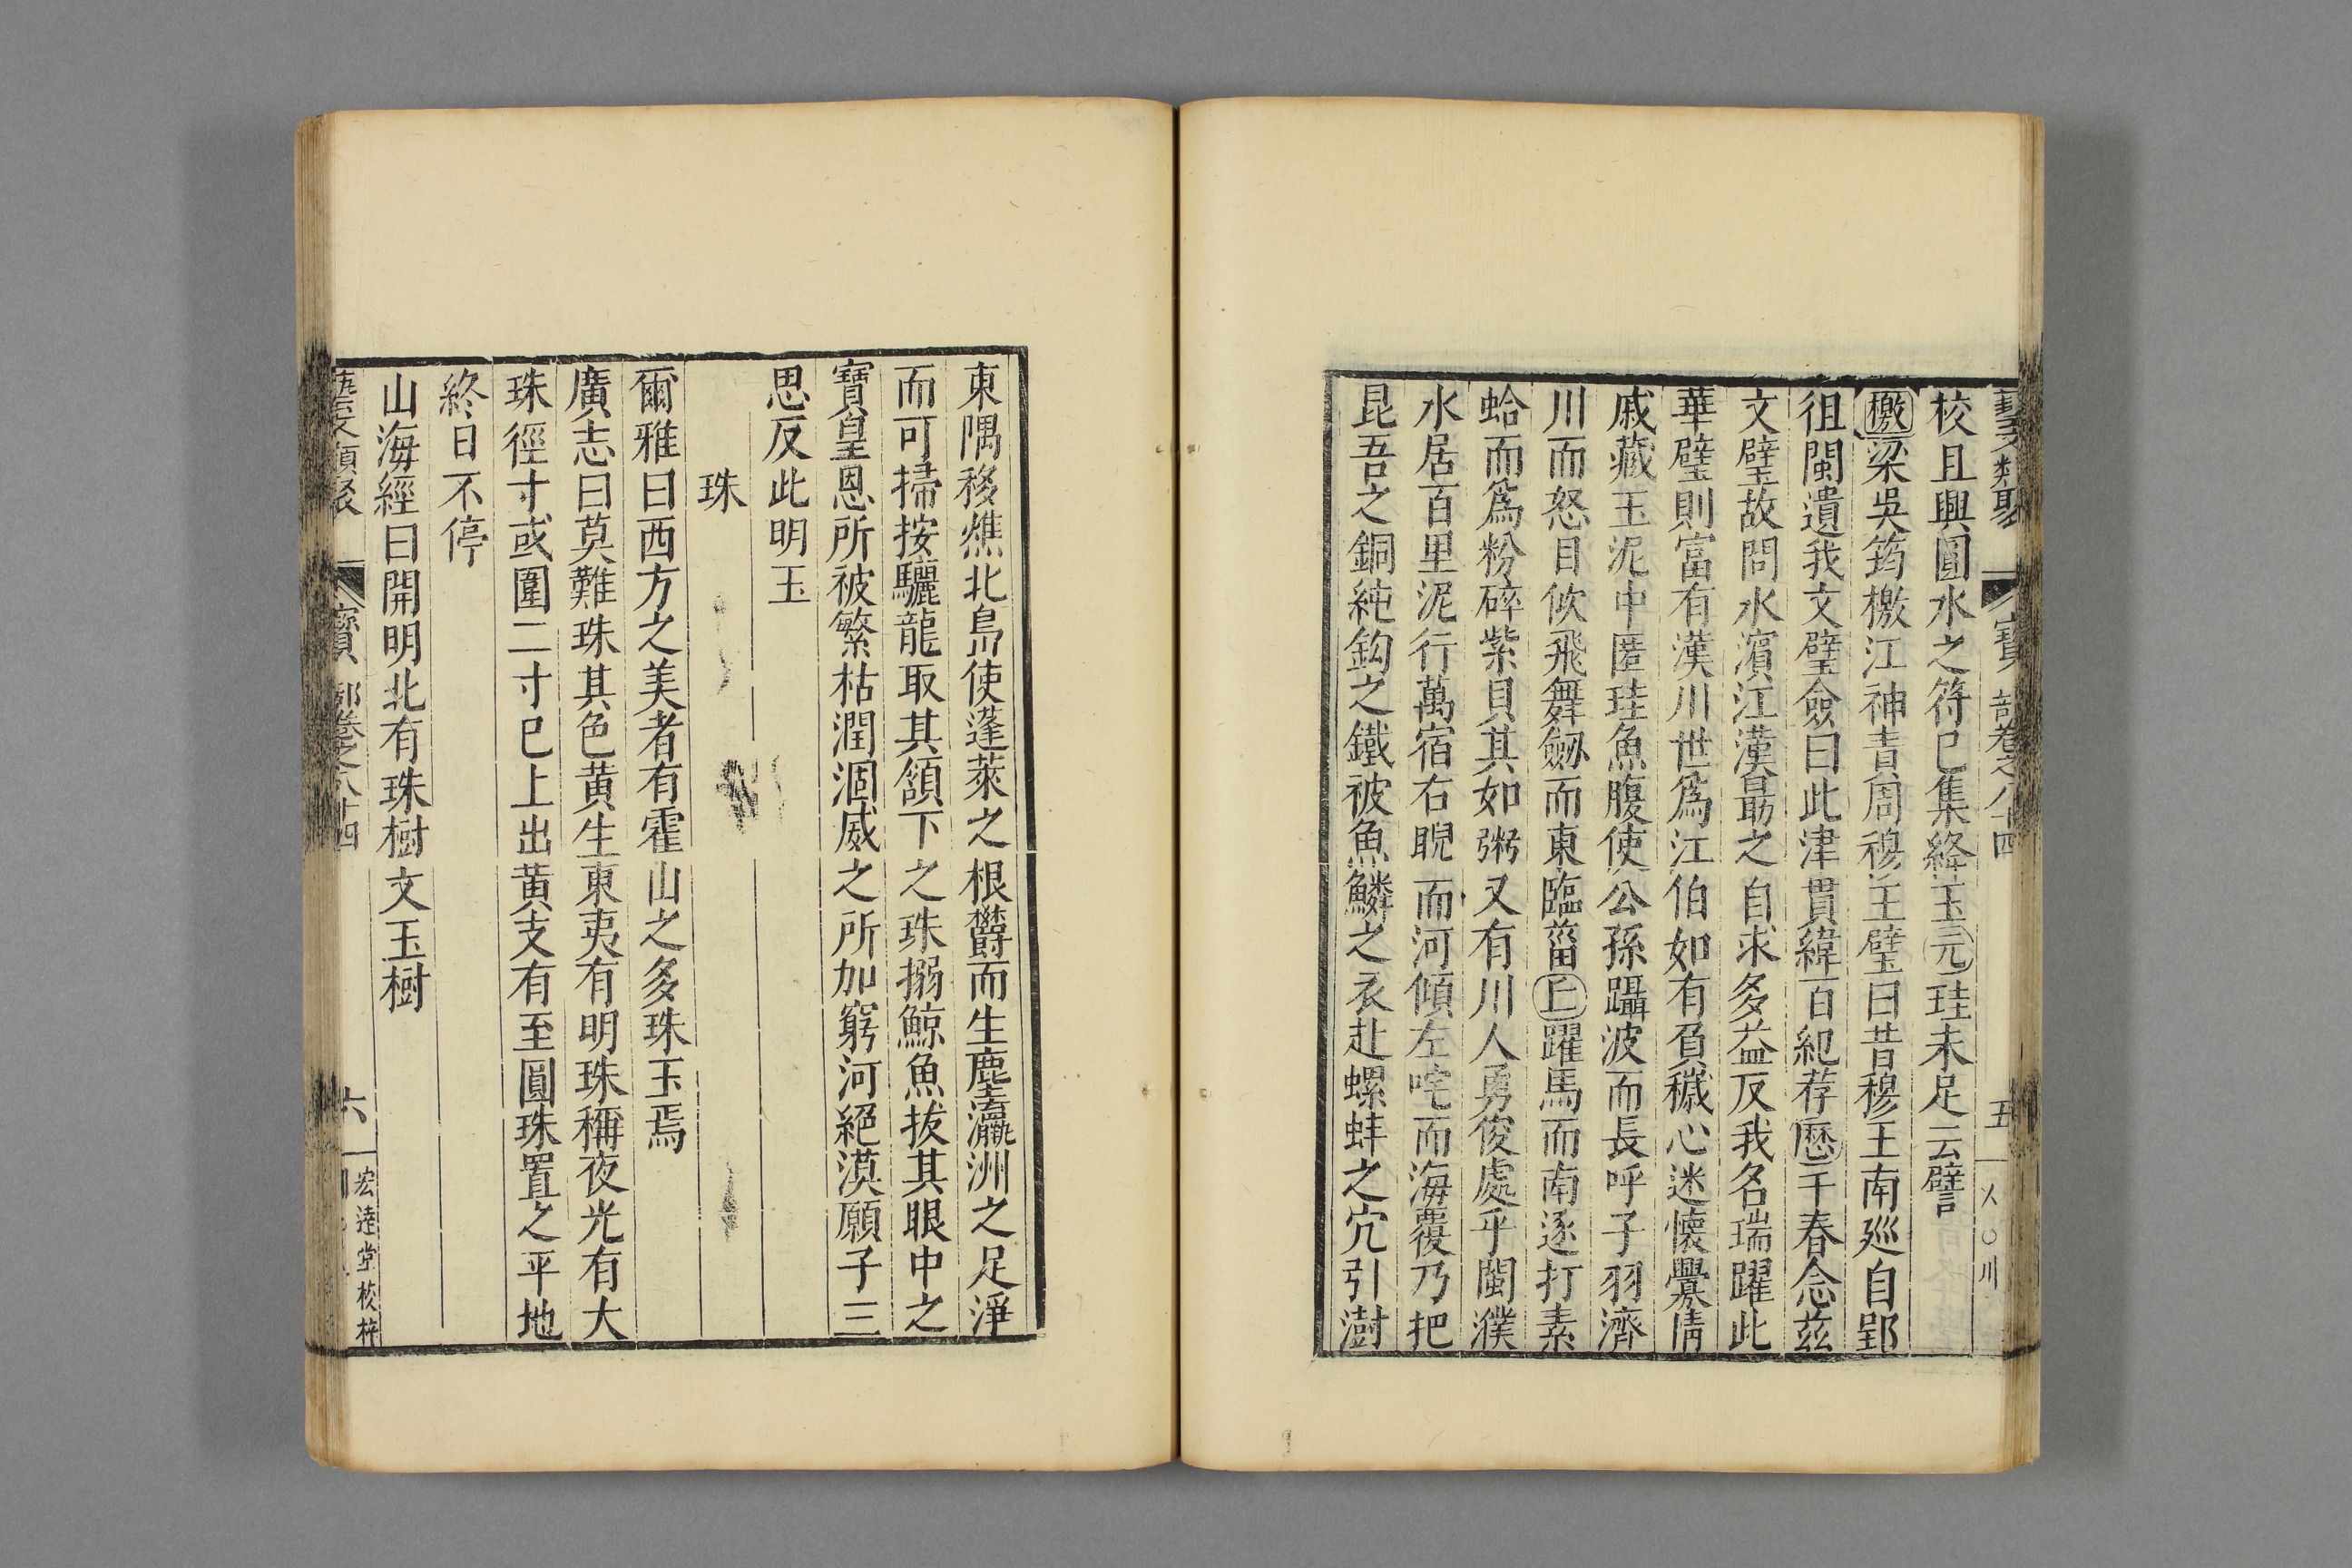 藝文類聚 寶 部卷之八十四 五
校且興圓水之符巳集絳玉元珪未足云譬
檄梁吳筠檄江神責周穆王璧曰昔穆王南廵自郢
徂閩遺我文璧僉曰此津貫緯百紀荐歷千春念茲
文璧故問水濱江漢最之自求多益反我名瑞躍此
華璧則富有漢川世爲江伯如有負穢心迷懐釁情
戚藏玉泥中匿珪魚腹使公孫躡波而長呼子羽濟
川而怒目佽飛舞劒而東臨菑上躍馬而南逐打素
蛤而爲粉碎紫貝其如粥又有川人勇俊處乎閩濮
水居百里泥行萬宿右睨而河傾左咤而海覆乃把
昆吾之銅純鈎之鐵被魚鱗之衣赴螺蚌之穴引澍
東隅移燋北島使蓬萊之根欎而生塵瀛洲之足淨
而可掃按驪龍取其頷下之珠搦鯨魚拔其眼中之
寶皇恩所被繁枯潤涸威之所加窮河絕漠願子三
思反此明玉
珠
爾雅曰西方之美者有霍山之多珠玉焉
廣志曰莫難珠其色黄生東夷有明珠稱夜光有大
珠徑寸或圍二寸巳上出黄支有至圓珠置之平地
終日不停
山海經曰開明北有珠樹文玉樹
藝文類聚 寶 部卷之八十四 六 宏逵堂校梓